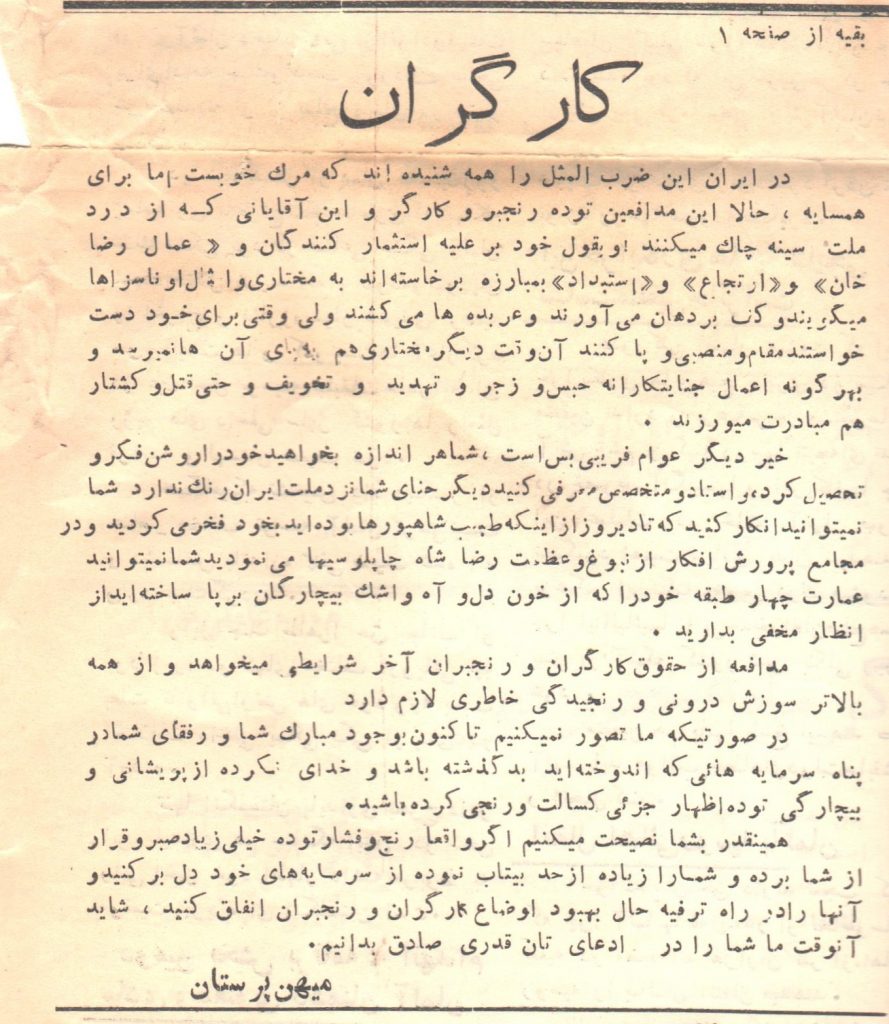 بقیه از صفحه ۱
کارگران
در ایران این ضرب المثل را همه شنیده اند که مرك خوبست اما برای
همسایه ، حالا این مدافعین توده رنجبر و کارگر و این آقایانی کـه از درد
ملت سینه چاك میکنند و بقول خود بر علیه استثمار کنندگان و « عمال رضا
خان» و «ارتجاع» و«استبداد» بمبارزه برخاسته‌اند به مختاری و امثال او ناسزاها
میگویند و کف بر دهان می‌آورند و عربده ها می کشند ولی وقتی برای خـود دست
خواستند مقام و منصبی و پا کنند آن وقت دیگر مختاری هم به پای آن ها نمیرسد و
بهر گونه اعمال جنایتکارانه حبس و زجر و تهدید و تخویف و حتی قتل و کشتار
هم مبادرت میورزند .
خیر دیگر عوام فریبی بس است ، شما هر اندازه بخواهید خود را روشن فکر و
تحصیل کرده و استاد و متخصص معرفی کنید دیگر حنای شما نزد ملت ایران رنك ندارد شما
نمیتوانید انکار کنید که تا دیروز از اینکه طبیب شاهپورها بوده اید بخود فخر می کردید و در
مجامع پرورش افکار از نبوغ و عظمت رضا شاه چاپلوسیها می نمودید شما نمیتوانید
عمارت چهار طبقه خود را که از خون دل و آه و اشك بیچارگان بر پا ساخته اید از
انظار مخفی بدارید .
مدافعه از حقوق کارگران و رنجبران آخر شرایطی میخواهد و از همه
بالاتر سوزش درونی و رنجیدگی خاطری لازم دارد
در صورتیکه ما تصور نمیکنیم تا کنون بوجود مبارك شما و رفقای شما در
پناه سرمایه هائی که اندوخته‌اید بد گذشته باشد و خدای نکرده از پریشانی و
بیچارگی توده اظهار جزئی کسالت و رنجی کرده باشید.
همینقدر بشما نصیحت میکنیم اگر واقعا رنج و فشار توده خیلی زیاد صبر و قرار
از شما برده و شما را زیاده از حد بیتاب نموده از سرمایه‌های خود دل بر کنید و
آنها را در راه ترفیه حال بهبود اوضاع کارگران و رنجبران انفاق کنید ، شاید
آنوقت ما شما را در ادعای تان قدری صادق بدانیم.
میهن پرستان